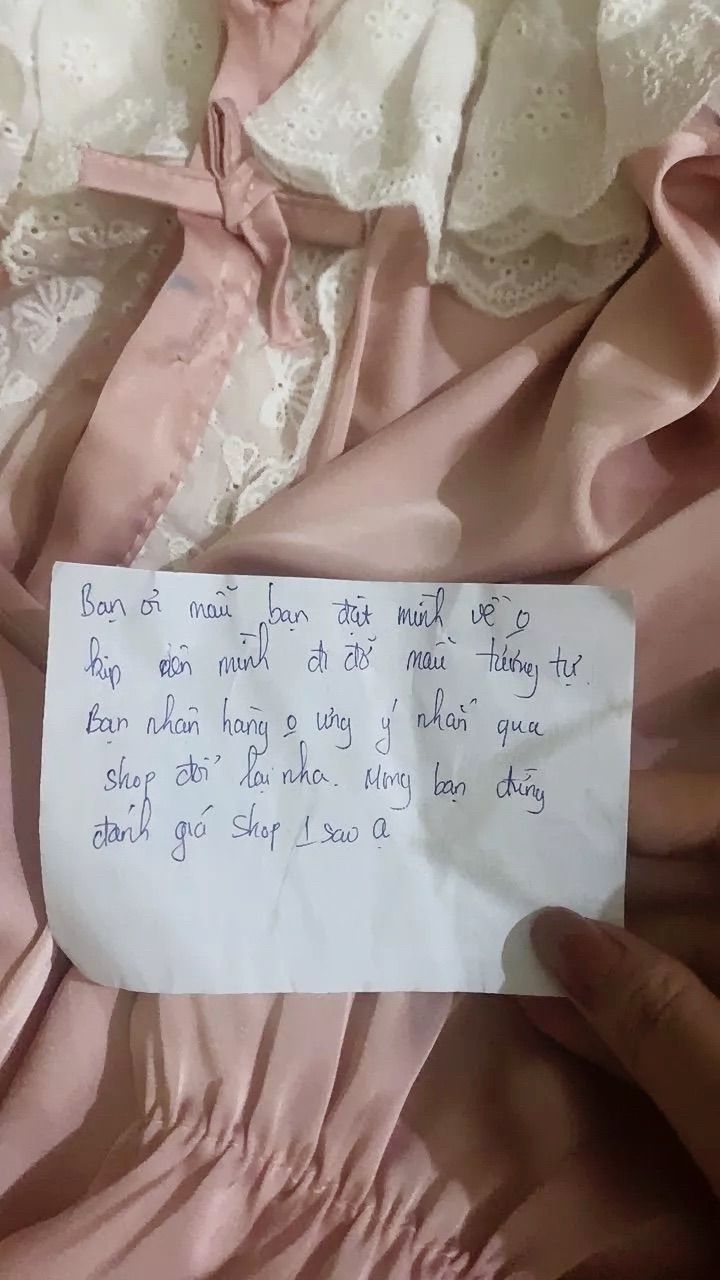 Bạn ơi mẫu bạn đặt mình về o
kịp nên mình đi đỡ mẫu tương tự.
Bạn nhận hàng o ưng ý nhắn qua
shop đổi lại nha. Mong bạn đừng
đánh giá shop 1 sao ạ